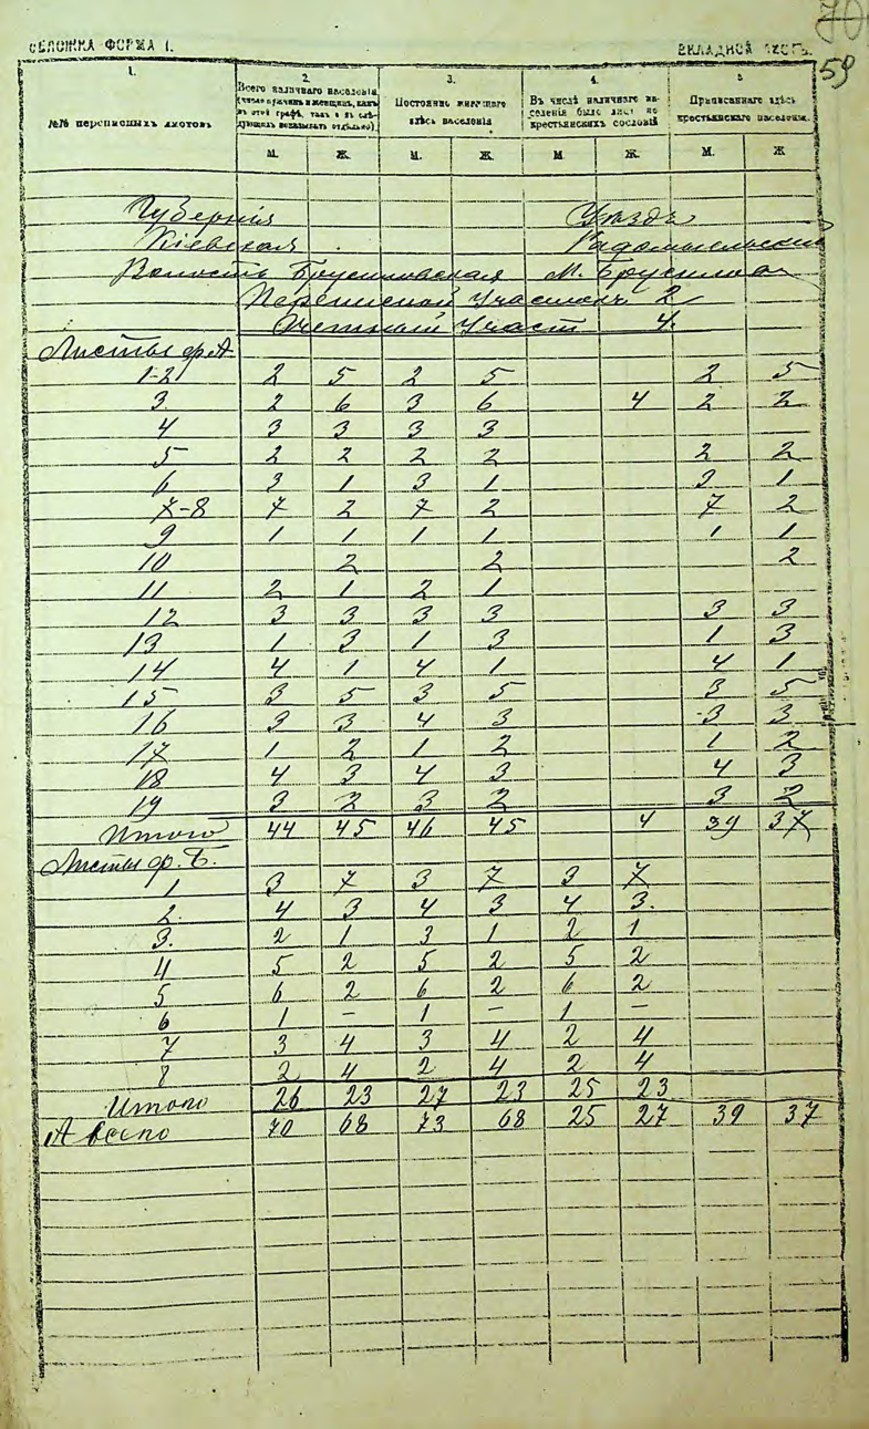 70
ОБЛОЖКА ФОРМА I. ВКЛАДНОЙ ЛИСТЪ.
59
1. 2. 3. 4. 5
№№ переписныхъ листовъ
Всего наличнаго населенія (число мужчинъ и женщинъ, какъ въ этой графѣ, такъ и въ слѣдующихъ показывать отдѣльно).
Постоянно живущаго здѣсь населенія
Въ числѣ наличнаго населенія было лицъ не крестьянскихъ сословій
Приписаннаго здѣсь крестьянскаго населенія.
М. Ж. М. Ж. М Ж. М. Ж
Губернія Уѣздъ
Кіевская Радомысльскій
Волость Брусиловская М. Брусиловъ
Переписной Участокъ 2
Счетный Участ 4.
Листы ф. А
1-2 2 5 2 5 2 5
3. 2 6 3 6 4 2 2
4 3 3 3 3
5 2 2 2 2 2 2
6 3 1 3 1 3 1
7-8 7 2 7 2 7 2
9 1 1 1 1 1 1
10 2 2 2
11 2 1 2 1
12 3 3 3 3 3 3
13 1 3 1 3 1 3
14 4 1 4 1 4 1
15 3 5 3 5 3 5
16 3 3 4 3 3 3
17 1 2 1 2 1 2
18 4 3 4 3 4 3
19 3 2 3 2 3 2
Итого 44 45 46 45 4 39 37
Листы ф. Б.
1 3 7 3 7 3 7
2. 4 3 4 3 4 3.
3. 2 1 3 1 2 1
4 5 2 5 2 5 2
5 6 2 6 2 6 2
6 1 — 1 — 1 —
7 3 4 3 4 2 4
8 2 4 2 4 2 4
Итого 26 23 27 23 25 23
А всего 70 68 73 68 25 27 39 37